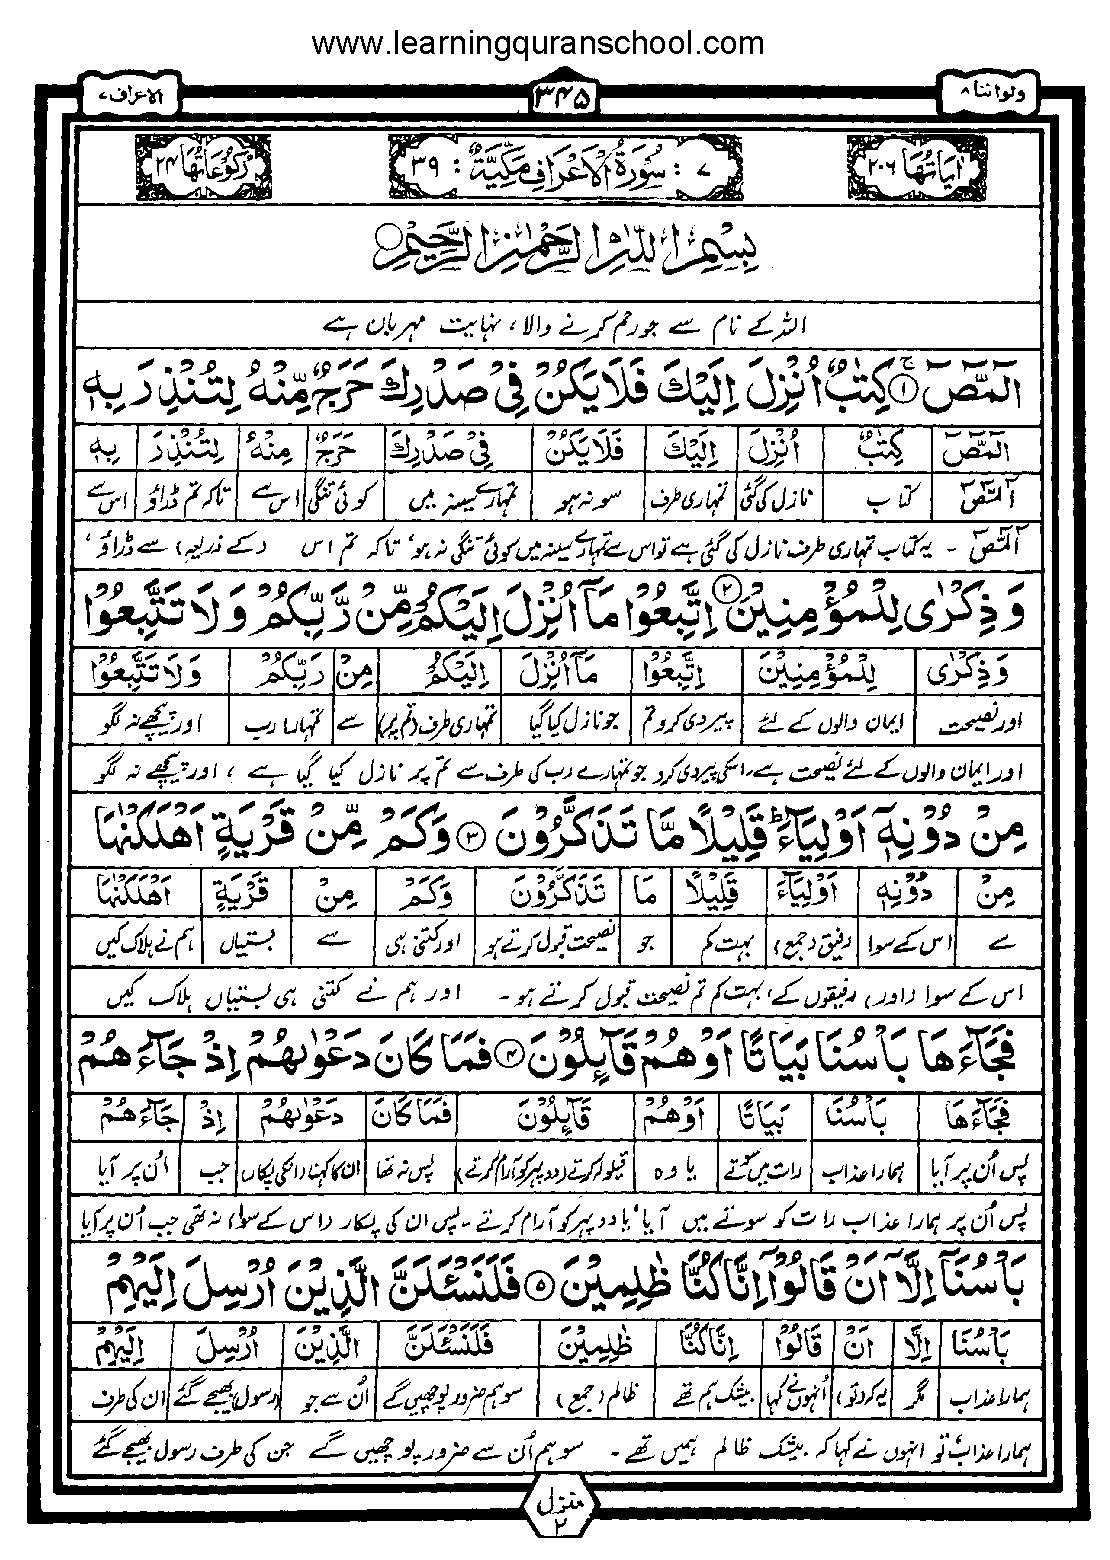 www.learningquranschool.com
ولواننا ۸
۳۴۵
الاعراف ۷
اٰیَاتُهَا ۲۰۶
۷ : سُوْرَةُ الْاَعْرَافِ مَكِّیَّةٌ : ۳۹
رُكُوْعَاتُهَا ۲۴
بِسْمِ اللّٰهِ الرَّحْمٰنِ الرَّحِیْمِ
اللہ کے نام سے جو رحم کرنے والا، نہایت مہربان ہے
الٓمّٓصٓ ۱ كِتٰبٌ اُنْزِلَ اِلَیْكَ فَلَا یَكُنْ فِیْ صَدْرِكَ حَرَجٌ مِّنْهُ لِتُنْذِرَ بِهٖ
الٓمّٓصٓ كِتٰبٌ اُنْزِلَ اِلَیْكَ فَلَا یَكُنْ فِیْ صَدْرِكَ حَرَجٌ مِنْهُ لِتُنْذِرَ بِهٖ
الٓمّٓصٓ کتاب نازل کی گئی تمہاری طرف سو نہ ہو تمہارے سینہ میں کوئی تنگی اس سے تاکہ تم ڈراؤ اس سے
الٓمّٓصٓ - یہ کتاب تمہاری طرف نازل کی گئی ہے تو اس سے تمہارے سینہ میں کوئی تنگی نہ ہو، تاکہ تم اس (کے ذریعہ) سے ڈراؤ،
وَ ذِكْرٰی لِلْمُؤْمِنِیْنَ ۲ اِتَّبِعُوْا مَاۤ اُنْزِلَ اِلَیْكُمْ مِّنْ رَّبِّكُمْ وَ لَا تَتَّبِعُوْا
وَ ذِكْرٰی لِلْمُؤْمِنِیْنَ اِتَّبِعُوْا مَاۤ اُنْزِلَ اِلَیْكُمْ مِنْ رَبِّكُمْ وَ لَا تَتَّبِعُوْا
اور نصیحت ایمان والوں کے لئے پیروی کرو تم جو نازل کیا گیا تمہاری طرف (تم پر) سے تمہارا رب اور پیچھے نہ لگو
اور ایمان والوں کے لئے نصیحت ہے، اسکی پیروی کرو جو تمہارے رب کی طرف سے تم پر نازل کیا گیا ہے، اور پیچھے نہ لگو
مِنْ دُوْنِهٖۤ اَوْلِیَآءَ ؕ قَلِیْلًا مَّا تَذَكَّرُوْنَ ۳ وَ كَمْ مِّنْ قَرْیَةٍ اَهْلَكْنٰهَا
مِنْ دُوْنِهٖ اَوْلِیَآءَ قَلِیْلًا مَا تَذَكَّرُوْنَ وَ كَمْ مِنْ قَرْیَةٍ اَهْلَكْنٰهَا
سے اس کے سوا رفیق (جمع) بہت کم جو نصیحت قبول کرتے ہو اور کتنی ہی سے بستیاں ہم نے ہلاک کیں
اس کے سوا (اور) رفیقوں کے، بہت کم تم نصیحت قبول کرتے ہو - اور ہم نے کتنی ہی بستیاں ہلاک کیں
فَجَآءَهَا بَاْسُنَا بَیَاتًا اَوْ هُمْ قَآئِلُوْنَ ۴ فَمَا كَانَ دَعْوٰىهُمْ اِذْ جَآءَهُمْ
فَجَآءَهَا بَاْسُنَا بَیَاتًا اَوْ هُمْ قَآئِلُوْنَ فَمَا كَانَ دَعْوٰىهُمْ اِذْ جَآءَهُمْ
پس اُن پر آیا ہمارا عذاب رات میں سوتے یا وہ قیلولہ کرتے (دوپہر کو آرام کرتے) پس نہ تھا ان کا کہنا (انکی پکار) جب اُن پر آیا
پس اُن پر ہمارا عذاب رات کو سوتے میں آیا، یا دوپہر کو آرام کرتے - پس ان کی پکار (اس کے سوا) نہ تھی جب اُن پر آیا
بَاْسُنَاۤ اِلَّاۤ اَنْ قَالُوْۤا اِنَّا كُنَّا ظٰلِمِیْنَ ۵ فَلَنَسْئَلَنَّ الَّذِیْنَ اُرْسِلَ اِلَیْهِمْ
بَاْسُنَا اِلَّا اَنْ قَالُوْا اِنَّا كُنَّا ظٰلِمِیْنَ فَلَنَسْئَلَنَّ الَّذِیْنَ اُرْسِلَ اِلَیْهِمْ
ہمارا عذاب مگر یہ کہ (تو) اُنہوں نے کہا بیشک ہم تھے ظالم (جمع) سو ہم ضرور پوچھیں گے اُن سے جو (رسول) بھیجے گئے ان کی طرف
ہمارا عذاب، تو انہوں نے کہا کہ بیشک ظالم ہمیں تھے - سو ہم اُن سے ضرور پوچھیں گے جن کی طرف رسول بھیجے گئے
منزل ۲